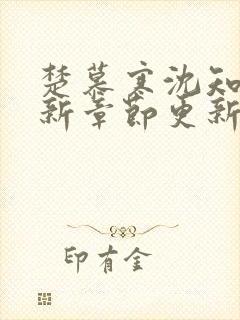 楚慕寒沈知
新章节更新
印有金